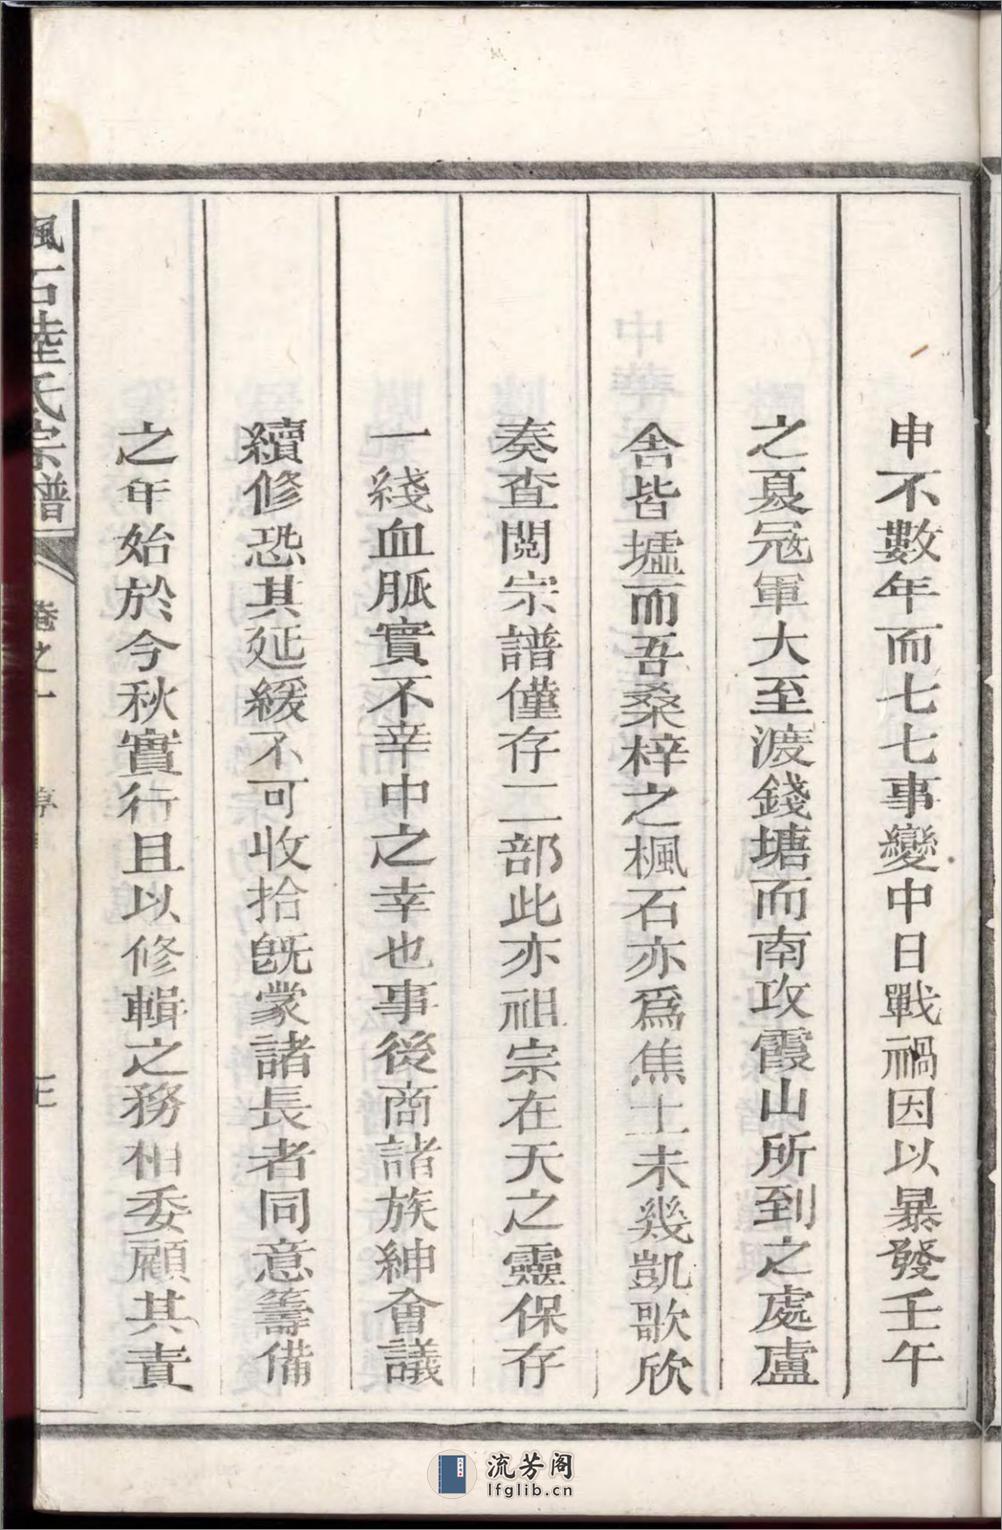 申不數年而七七事變中日戰禍因以暴發壬午
之夏冦軍大至渡錢塘而南攻霞山所到之處盧
舎皆墟而吾桑梓之楓石亦爲焦土未幾凱歌欣
奏查閱宗譜僅存二部此亦祖宗在天之靈保存
一綫血脈實不幸中之幸也事後商諸族紳會議
續修恐其延緩不可收拾旣蒙諸長者同意籌備
之年始於今秋實行且以修輯之務相委顧其責
楓石陸氏宗譜 卷之一 序 三
流芳阁
lfglib.cn